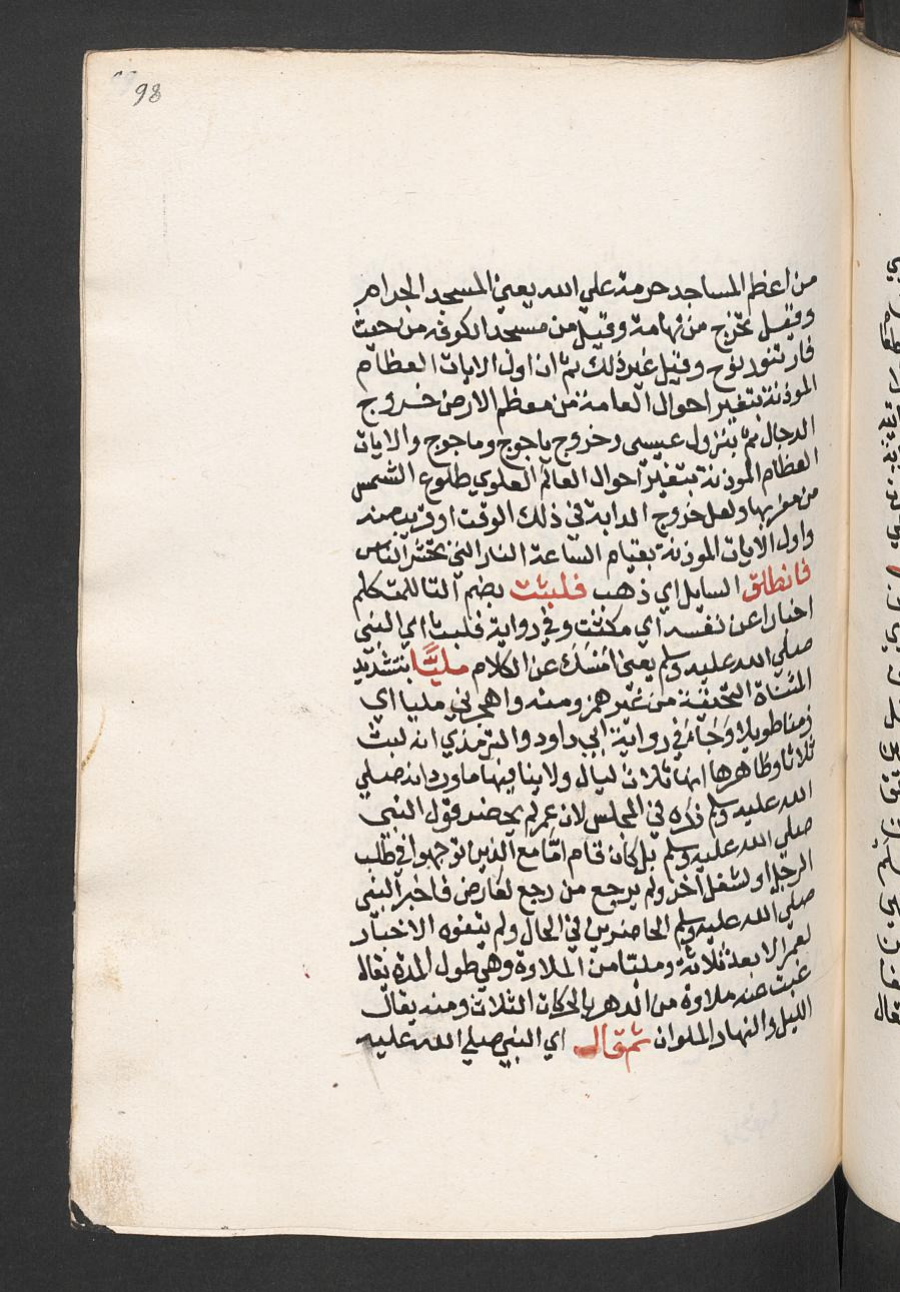 98
من اعظم المساجد حرمة علي الله يعني المسجد الحرام
وقيل تخرج من تهامة وقيل من مسجد الكوفه من حيث
فار تنور نوح وقيل غير ذلك ثم ان اول الايات العظام
الموذنة بتغير احوال العامة من معظم الارض خروج
الدجال ثم بنزول عيسي وخروج ياجوج وماجوج والايات
العظام الموذنة بتغير احوال العالم العلوي طلوع الشمس
من مغربها ولعل خروج الدابة في ذلك الوقت او قريب منه
واول الايات الموذنة بقيام الساعة النار التي تحشر الناس
فانطلق السايل اي ذهب فلبثت بضم التا للمتكلم
اخبارا عن نفسه اي مكثت وفي رواية فلبث اي النبي
صلي الله عليه وسلم يعني امسك عن الكلام مليًّا بتشديد
المثناة التحتية من غير همز ومنه واهجرني مليا اي
زمنا طويلا وجاء في رواية ابي داود والترمذي انه لبث
ثلاثا وظاهرها انها ثلاث ليال ولا ينافيها ما ورد انه صلي
الله عليه وسلم ذكره في المجلس لان عمر لم يحضر قول النبي
صلي الله عليه وسلم بل كان قام اما مع الذين توجهوا في طلب
الرجل او لشغل آخر ولم يرجع من رجع لعارض فاخبر النبي
صلي الله عليه وسلم الحاضرين في الحال ولم يتفوه الاخبار
لعمر الا بعد ثلاثة ومليا من الملاوة وهي طول المدة يقال
غبت عنه ملاوة من الدهر بالحركات الثلاث ومنه يقال
الليل والنهار الملوان ثم قال اي النبي صلي الله عليه